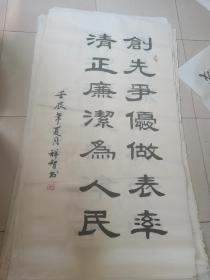 創先爭優做表率
清正廉潔為人民
壬辰年夏月祥智書